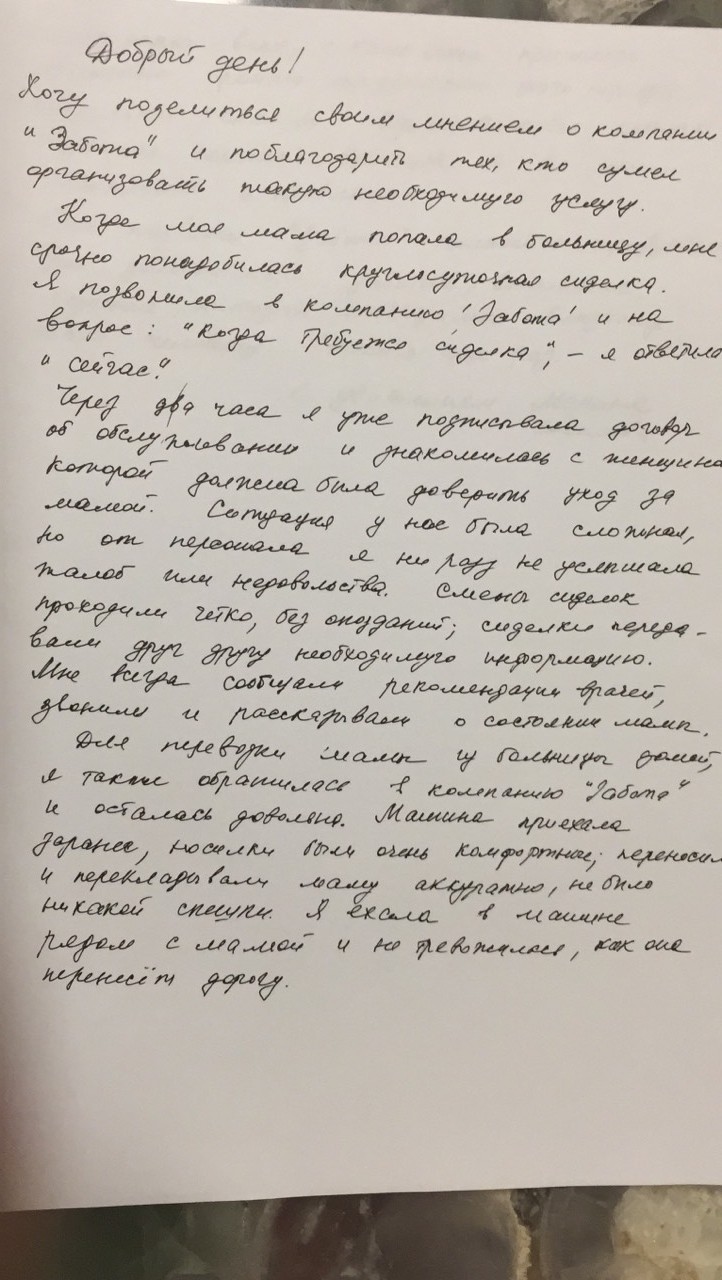 Добрый день!
Хочу поделиться своим мнением о компании
"Забота" и поблагодарить тех, кто сумел
организовать такую необходимую услугу.
Когда моя мама попала в больницу, мне
срочно понадобилась круглосуточная сиделка.
Я позвонила в компанию "Забота" и на
вопрос: "Когда требуется сиделка", – я ответила
"Сейчас".
Через два часа я уже подписывала договор
об обслуживании и знакомилась с женщина
которой должна была доверить уход за
мамой. Ситуация у нас была сложная,
но от персонала я ни разу не услышала
жалоб или недовольства. Смены сиделок
проходили чётко, без опозданий; сиделки переда-
вали друг другу необходимую информацию.
Мне всегда сообщали рекомендации врачей,
звонили и рассказывали о состоянии мамы.
Для перевозки мамы из больницы домой,
я также обратилась в компанию "Забота"
и осталась довольна. Машина приехала
заранее, носилки были очень комфортные; переносил
и перекладывали маму аккуратно, не было
никакой спешки. Я ехала в машине
рядом с мамой и не тревожилась, как она
перенесёт дорогу.